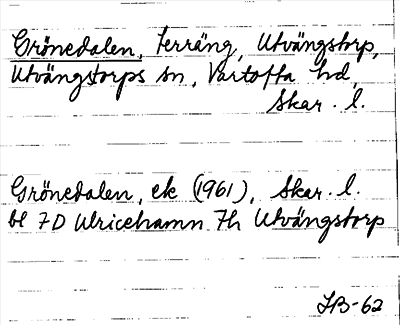 Grönedalen, terräng, Utvängstorp,
Utvängstorps sn, Vartofta hd,
Skar. l.
Grönedalen, ek (1961), Skar. l.
bl 7D Ulricehamn 7h Utvängstorp
IB-62